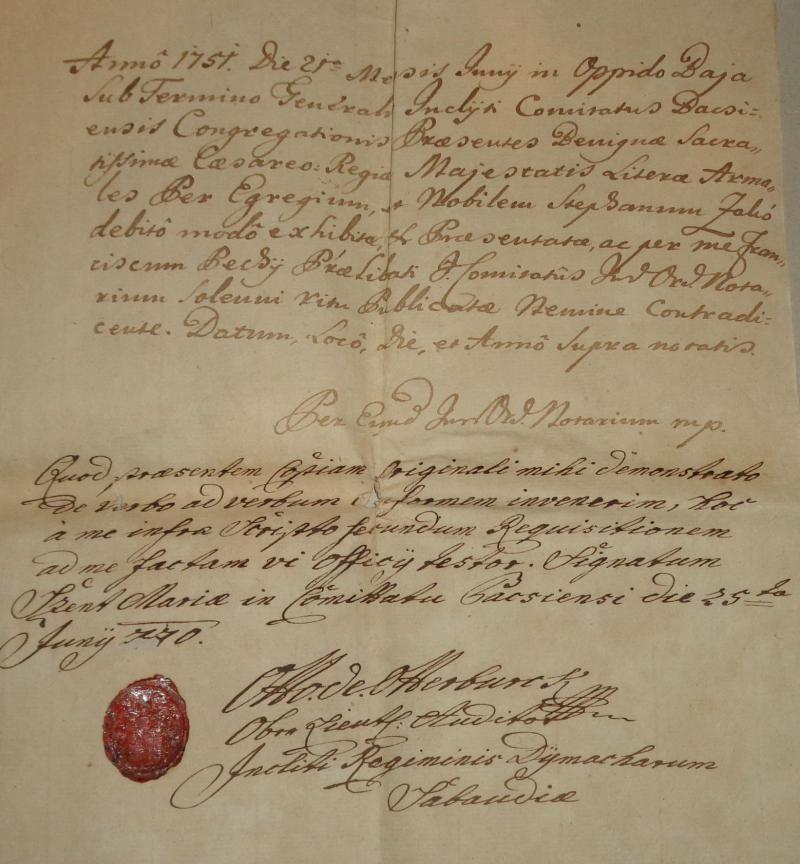 Annô 1751. Die 21ma Mensis Junÿ in Oppido Baja
Sub Termino Generali Inclyti Comitatus Bacsi=
ensis Congregationis Præsentes Benignæ Sacra„
tissimæ Cæsareo=Regiæ Majestatis Literæ Arma„
les Per Egregium, et Nobilem Stephanum
debitô modô exhibitæ, et Præsentatæ, ac per me Fran„
ciscum Præ libati I. Comitatûs Jur Ord Nota„
rium Solenni ritu Publicatæ Nemine Contradi=
cente. Datum, Locô, Die, et Annô Supra notatis.
Per Eund Jur Ord. Notarium mp.
Quod præsentem Copiam Originali mihi demonstrato
de verbo ad verbum conformem invenerim, hoc
à me infra Scripto secundum Requisitionem
ad me factam vi Officÿ testor. Signatum
Szent Mariæ in Comittatu Bacsiensi die 25ta
Junÿ 770.
Otto. de. Otterburck mp
Ober Lieut: Auditor
Incliti Regiminis Dÿmacharum
Sabaudiæ